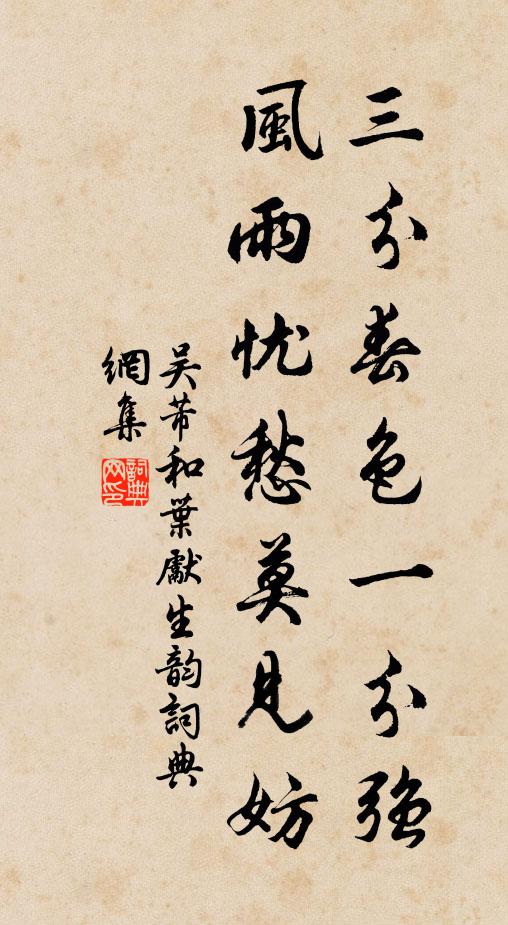 三分春色一分強
風雨忧愁莫見妨
吴芾和葉獻生韵詞典
網集
詞典網印